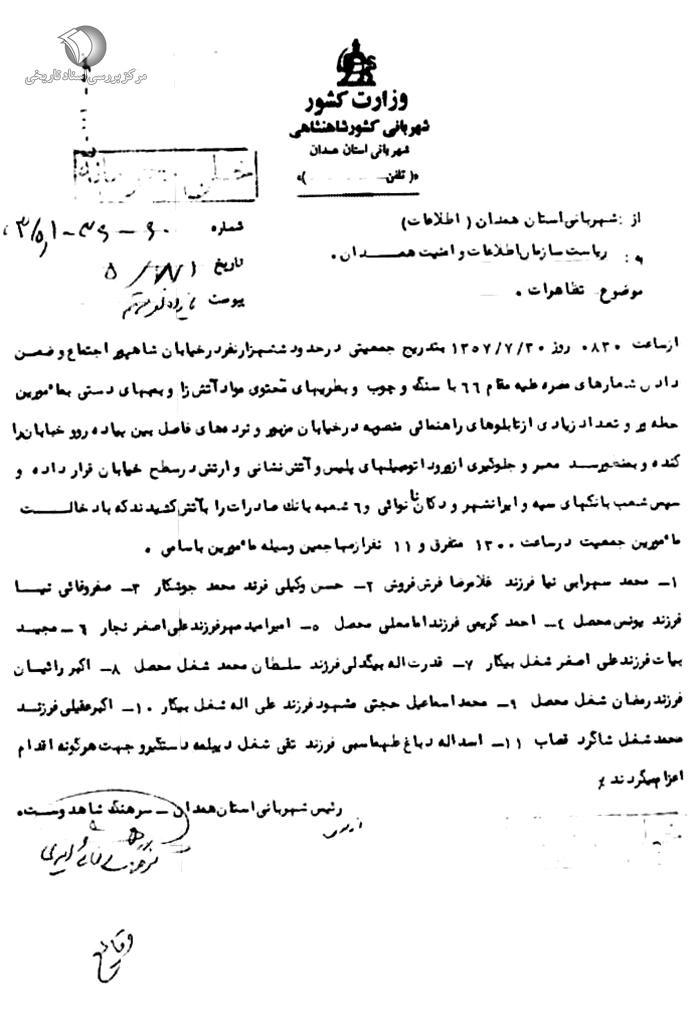 مرکز بررسی اسناد تاریخی
وزارت کشور
شهربانی کشور شاهنشاهی
شهربانی استان همدان
(تلفن )
خیلی محرمانه
از : شهربانی استان همدان ( اطلاعات )
شماره
به : ریاست سازمان اطلاعات و امنیت همدان .
تاریخ
موضوع تظاهرات .
پیوست
از ساعت ۰۸۳۰ روز ۱۳۵۷/۷/۳۰ بتدریج جمعیتی در حدود ششهزار نفر در خیابان شاهپور اجتماع و ضمن
دادن شعارهای مضره علیه مقام ۶۶ با سنگ و چوب و بطریهای محتوی مواد آتش زا و بمبهای دستی بمأمورین
حمله بر و تعداد زیادی از تابلوهای راهنمائی منصوبه در خیابان مزبور و نرده های فاصل بین پیاده رو و خیابان را
کنده و بمنظور سد معبر و جلوگیری از ورود اتومبیلهای پلیس و آتش نشانی و ارتش در سطح خیابان قرار داده و
سپس شعب بانکهای سپه و ایرانشهر و دکان نانوائی و ۶ شعبه بانک صادرات را بآتش کشیدند که با دخالت
مأمورین جمعیت در ساعت ۱۳۰۰ متفرق و ۱۱ نفر از مهاجمین وسیله مأمورین باسامی .
۱- محمد سهرابی نیا فرزند غلامرضا فرش فروش ۲- حسن وکیلی فرند محمد جوشکار ۳- صفر وفائی نیا
فرزند یونس محصل ۴- احمد کریمی فرزند امامعلی محصل ۵- امیر امید مهر فرزند علی اصغر نجار ۶- مجید
بیات فرزند علی اصغر شغل بیکار ۷- قدرت اله بیگدلی فرزند سلطان محمد شغل محصل ۸- اکبر راثیان
فرزند رمضان شغل محصل ۹- محمد اسماعیل حجتی مشهود فرزند علی اله شغل بیکار ۱۰- اکبر عقیلی فرزند
محمد شغل شاگرد قصاب ۱۱- اسداله دباغ طهماسبی فرزند تقی شغل دیپلمه دستگیر و جهت هرگونه اقدام
اعزام میگردند
رئیس شهربانی استان همدان - سرهنگ شاهد وست.
وقایع